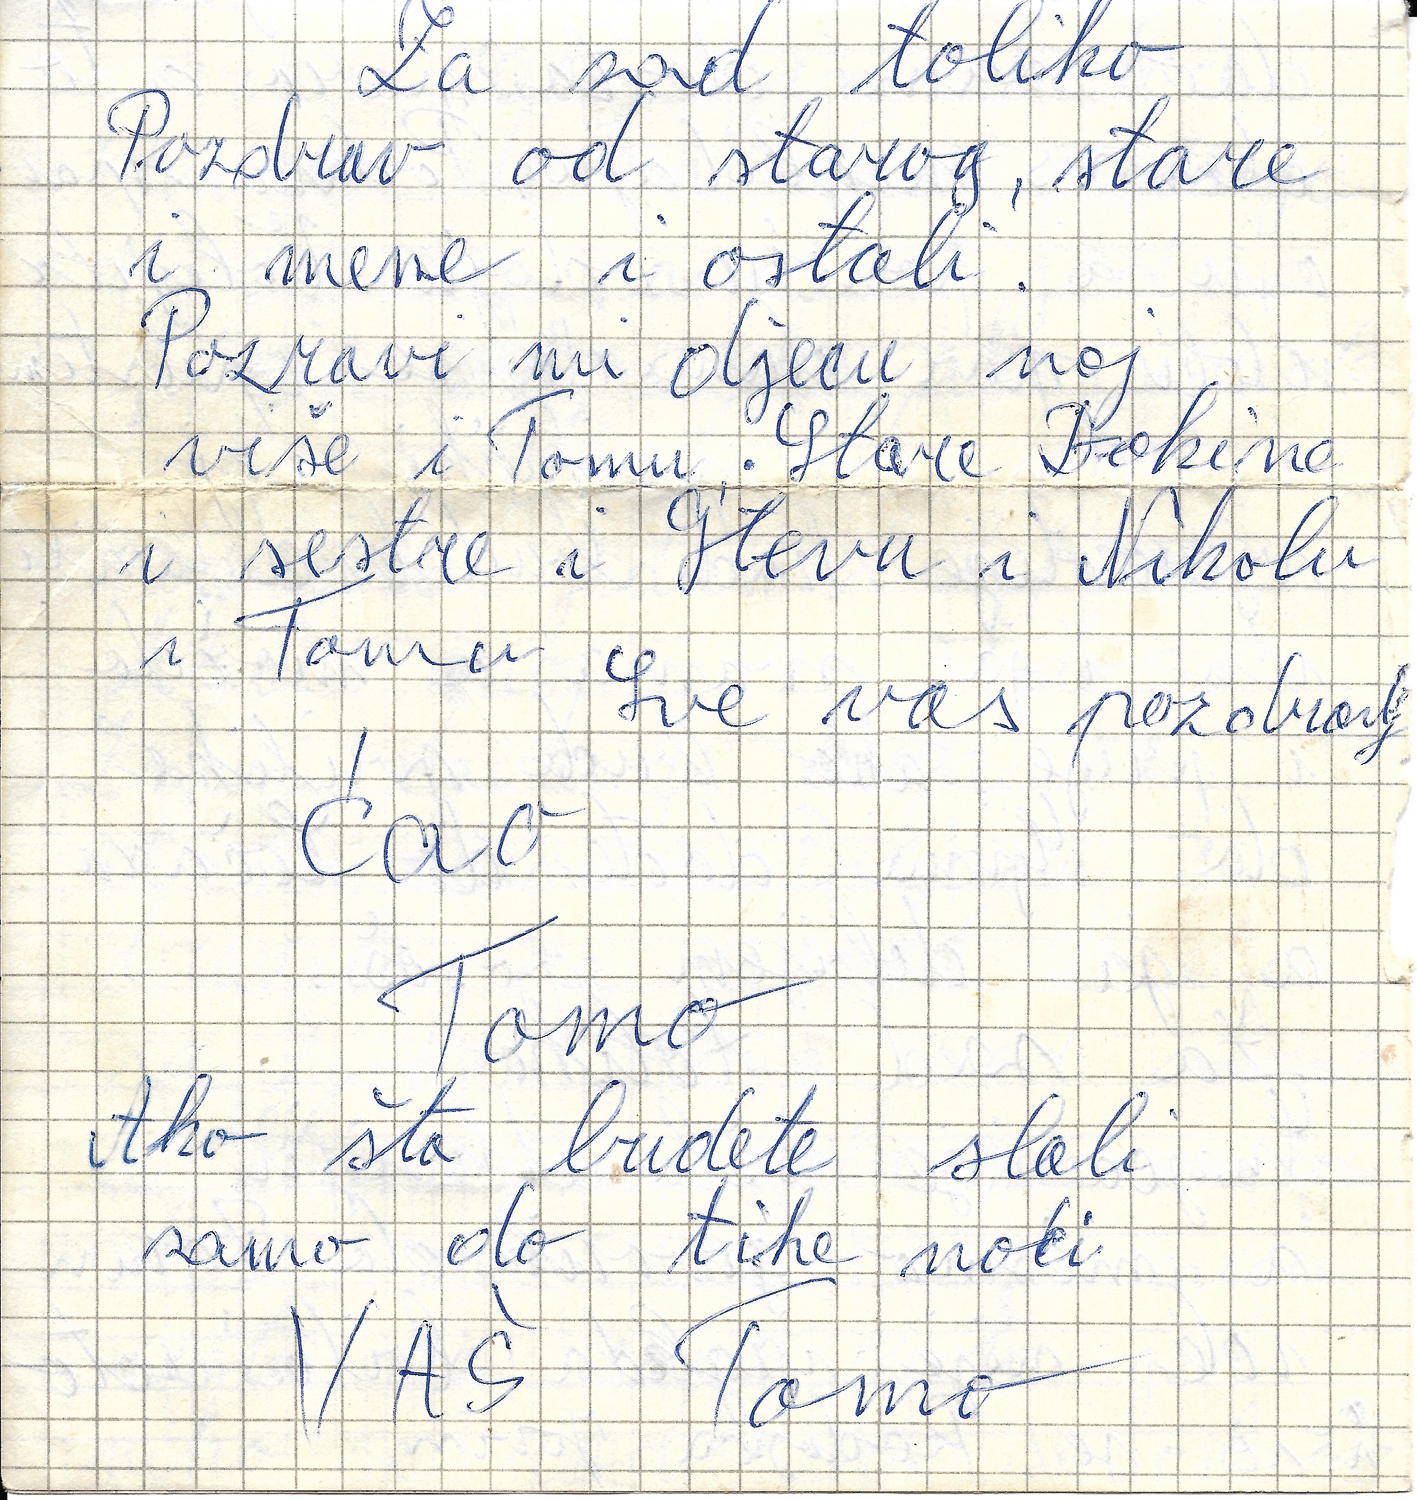 Za sad toliko
Pozdrav od starog, stare
i mene i ostali.
Pozravi mi djecu naj
više i Tomu. Stare
i sestre i Stevu i Nikolu
i Tomu
Sve vas pozdravlj
Ćao
Tomo
Ako šta budete slali
samo do tihe noći
VAŠ Tomo